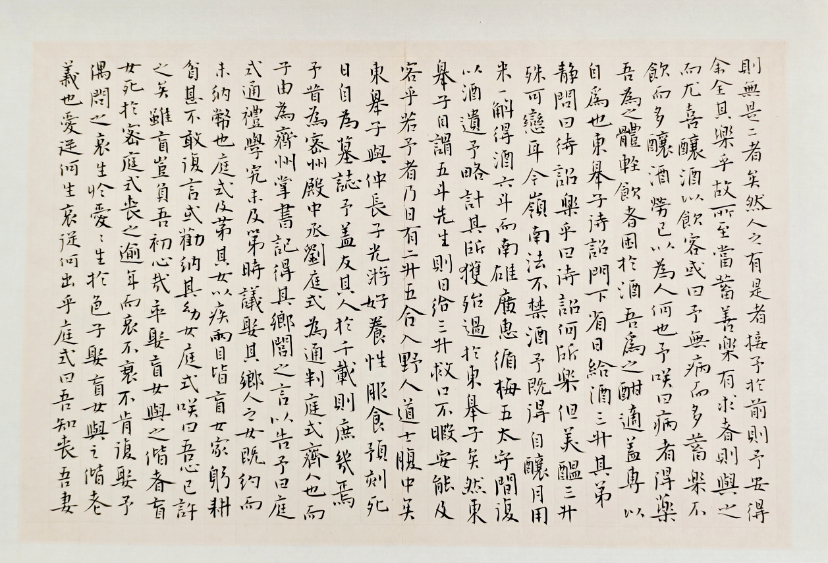 則無是二者矣然人之有是者接予於前則予安得
余全其樂乎故所至當蓄善藥有求者則與之
而尤喜釀酒以飲客或曰予無病而多蓄藥不
飲而多釀酒勞己以為人何也予咲曰病者得藥
吾為之體輕飲者困於酒吾為之酣適蓋專以
自為也東皋子待詔門下省日給酒三升其弟
静問曰待詔樂乎曰待詔何所樂但美醞三升
殊可戀耳今嶺南法不禁酒予既得自釀月用
米一斛得酒六斗而南雄廣惠循梅五太守間復
以酒遺予略計其所獲殆過於東皋子矣然東
皋子自謂五斗先生則日給三升救口不暇安能及
客乎若予者乃日有二升五合入野人道士腹中矣
東皋子與仲長子光游好養性服食預刻死
日自為墓誌予蓋友其人於千載則庶幾焉
予昔為密州殿中丞劉庭式為通判庭式齊人也而
子由為齊州掌書記得其鄉閭之言以告予曰庭
式通禮學究未及第時議娶其鄉人之女既約而
未納幣也庭式及第其女以疾兩目皆盲女家躬耕
貧甚不敢復言或勸納其幼女庭式咲曰吾心已許
之矣雖盲豈負吾初心哉卒娶盲女與之偕老盲
女死於密庭式喪之逾年而哀不衰不肯復娶予
偶問之哀生於愛〻生於色子娶盲女與之偕老
義也愛從何生哀從何出乎庭式曰吾知喪吾妻